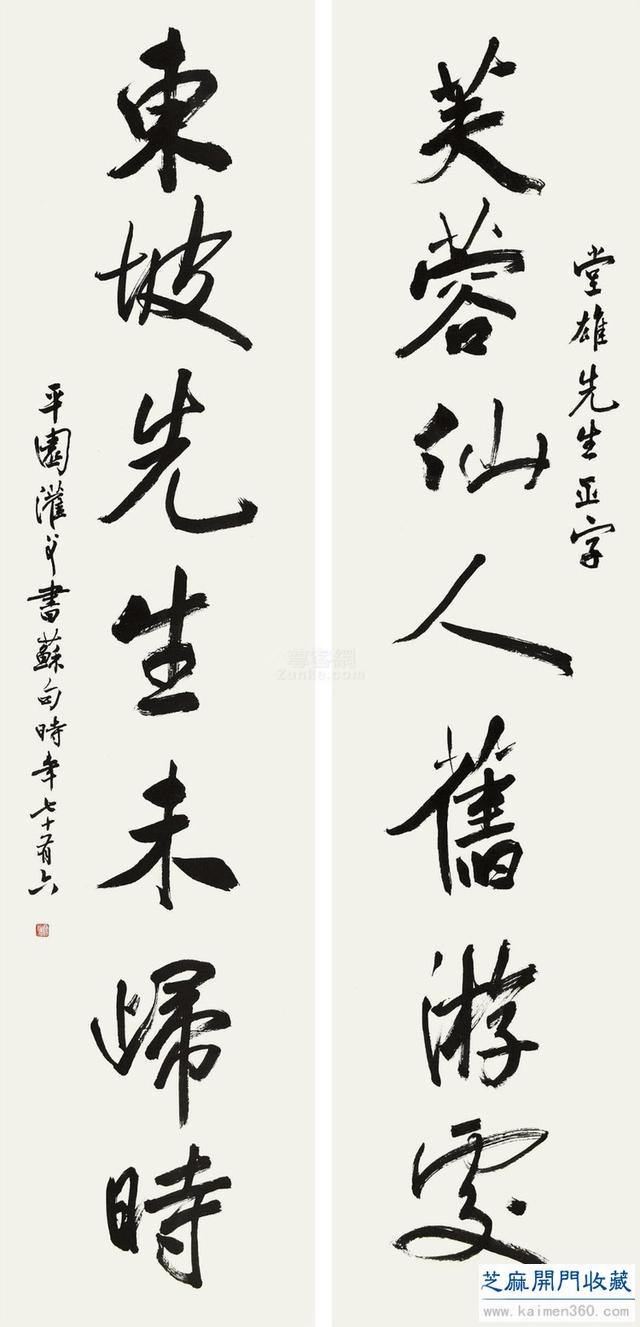 堂雄先生正字
芙蓉仙人舊游處
東坡先生未歸時
平園灌叟書蘇句時年七十有六
尊客網
Zunke.com
芝麻開門收藏
www.kaimen360.com